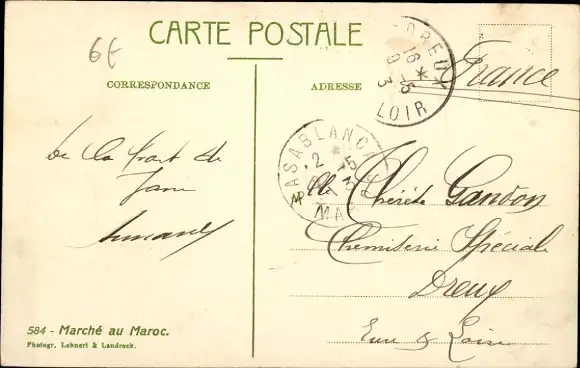 6€
CARTE POSTALE
CORRESPONDANCE
ADRESSE
DREUX
16 * -5
3
LOIR
France
CASABLANCA
2 * 5
MA
de la part de
Chérete Gandon
Chemiserie Spécial
Dreux
Eure & Loir
584 - Marché au Maroc.
Photogr. Lehnert & Landrock.